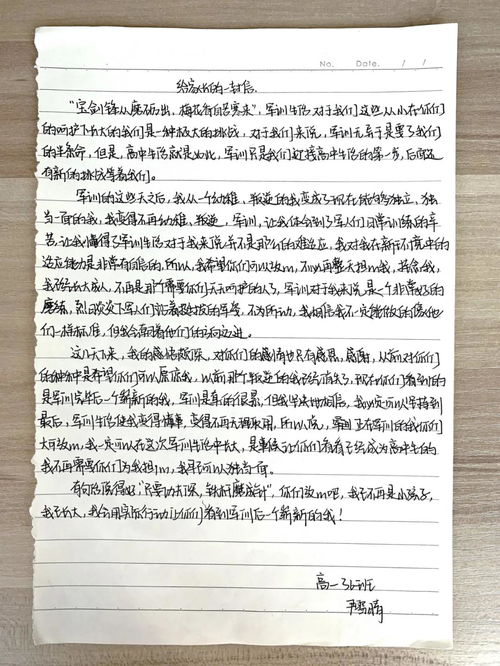 No.
Date. / /
给家长的一封信
"宝剑锋从磨砺出，梅花香自苦寒来"，军训生活对于我们这些从小在你们
的呵护下长大的我们是一种极大的挑战，对于我们来说，军训无异于是要了我们
的半条命，但是，高中生活就是如此，军训只是我们过度高中生活的第一步，后面还
有新的挑战等着我们。
军训的这些天之后，我从一个幼稚、叛逆的我变成了现在能够独立、独
当一面的我，我变得不再幼稚、叛逆，军训，让我体会到了军人们日常训练的辛
苦，让我懂得了军训生活对于我来说并不是那么的难适应，我对我在新环境中的
适应能力是非常有自信的，所以，我希望你们可以放心，不必再整天担心我，挂念我，
我已经长大成人，不再是那个需要你们天天呵护的人了，军训对于我来说是一个非常好的
磨练，烈日炎炎下军人们沿着挺拔的军姿，不为所动，我相信我不一定能做的像他
们一样标准，但我会向着他们的方向迈进。
这几天下来，我的感悟颇深，对你们的感情也只有感恩，感谢，从前对你们
的种种中是希望你们可以原谅我，以前那个叛逆的我已经消失了，现在你们看到的
是军训完毕后一个崭新的我，军训是真的很累，但我早决地相信，我必定可以坚持到
最后，军训生活使我变得懂事，变得不再无理取闹，所以说，
大可放心，我一定可以在这次军训生活中长大，
我不再需要你们为我担心，我已可以独当一面。
有句话说得好"只要功夫深，铁杵磨成针"，你们放心吧，我已不再是小孩子，
我已长大，我会用实际行动让你们看到军训后一个崭新的我！
高一3班